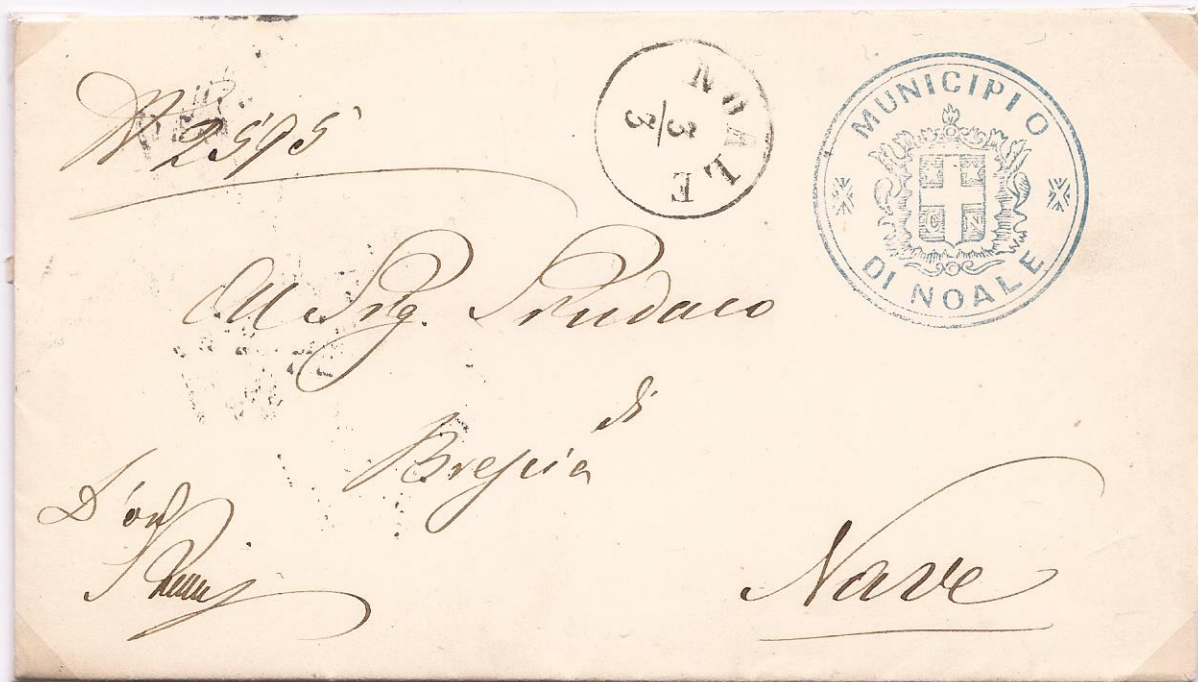 N 2595
NOALE
3/3
MUNICIPIO
DI NOALE
C V
All Sig. Sindaco
di
Brescia
Nave
D'uff